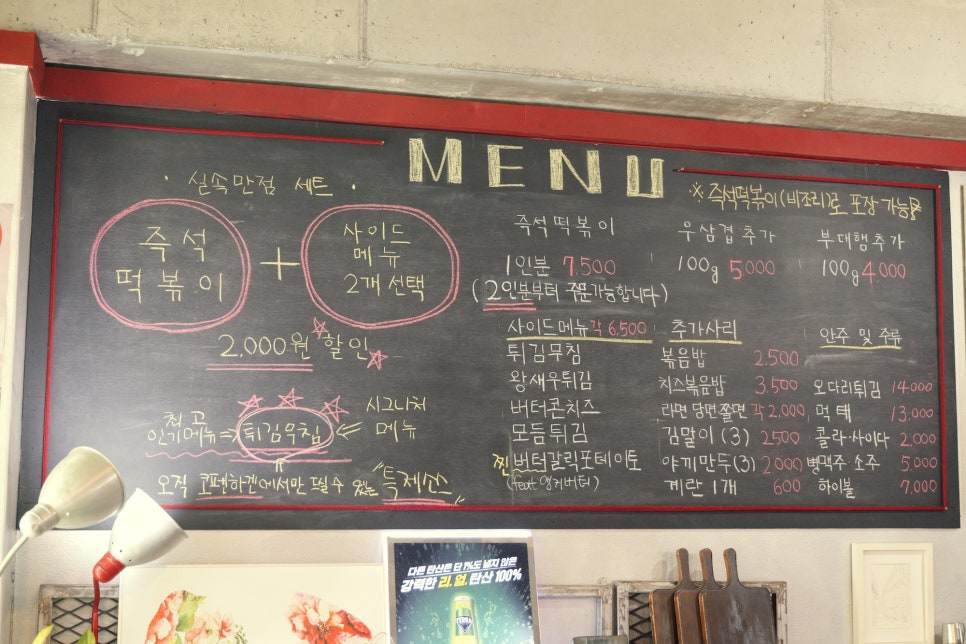 MENU
· 실속만점 세트 ·
즉석
떡볶이
+
사이드
메뉴
2개 선택
2,000원 할인
최고
인기메뉴⇒
튀김무침
⇐ 시그니처
메뉴
오직 코펜하겐에서만 뜨실 수 있는 "특제쏘스"
※ 즉석떡볶이(비조리)로 포장 가능
즉석떡볶이
1인분 7,500
(2인분부터 주문가능합니다)
우삼겹추가
100g 5000
부대햄추가
100g 4,000
사이드메뉴 각 6,500
튀김무침
왕새우튀김
버터콘치즈
모듬튀김
찐 버터갈릭포테이토
(feat 앵커버터)
추가사리
볶음밥 2500
치즈볶음밥 3,500
라면 당면 쫄면 각 2,000
김말이 (3) 2500
야끼만두(3) 2,000
계란 1개 600
안주 및 주류
오다리튀김 14,000
먹태 13,000
콜라·사이다 2,000
병맥주 소주 5,000
하이볼 7,000
다른 탄산은 단 1%도 넣지 않은
강력한 리.얼.탄산 100%
TERRA